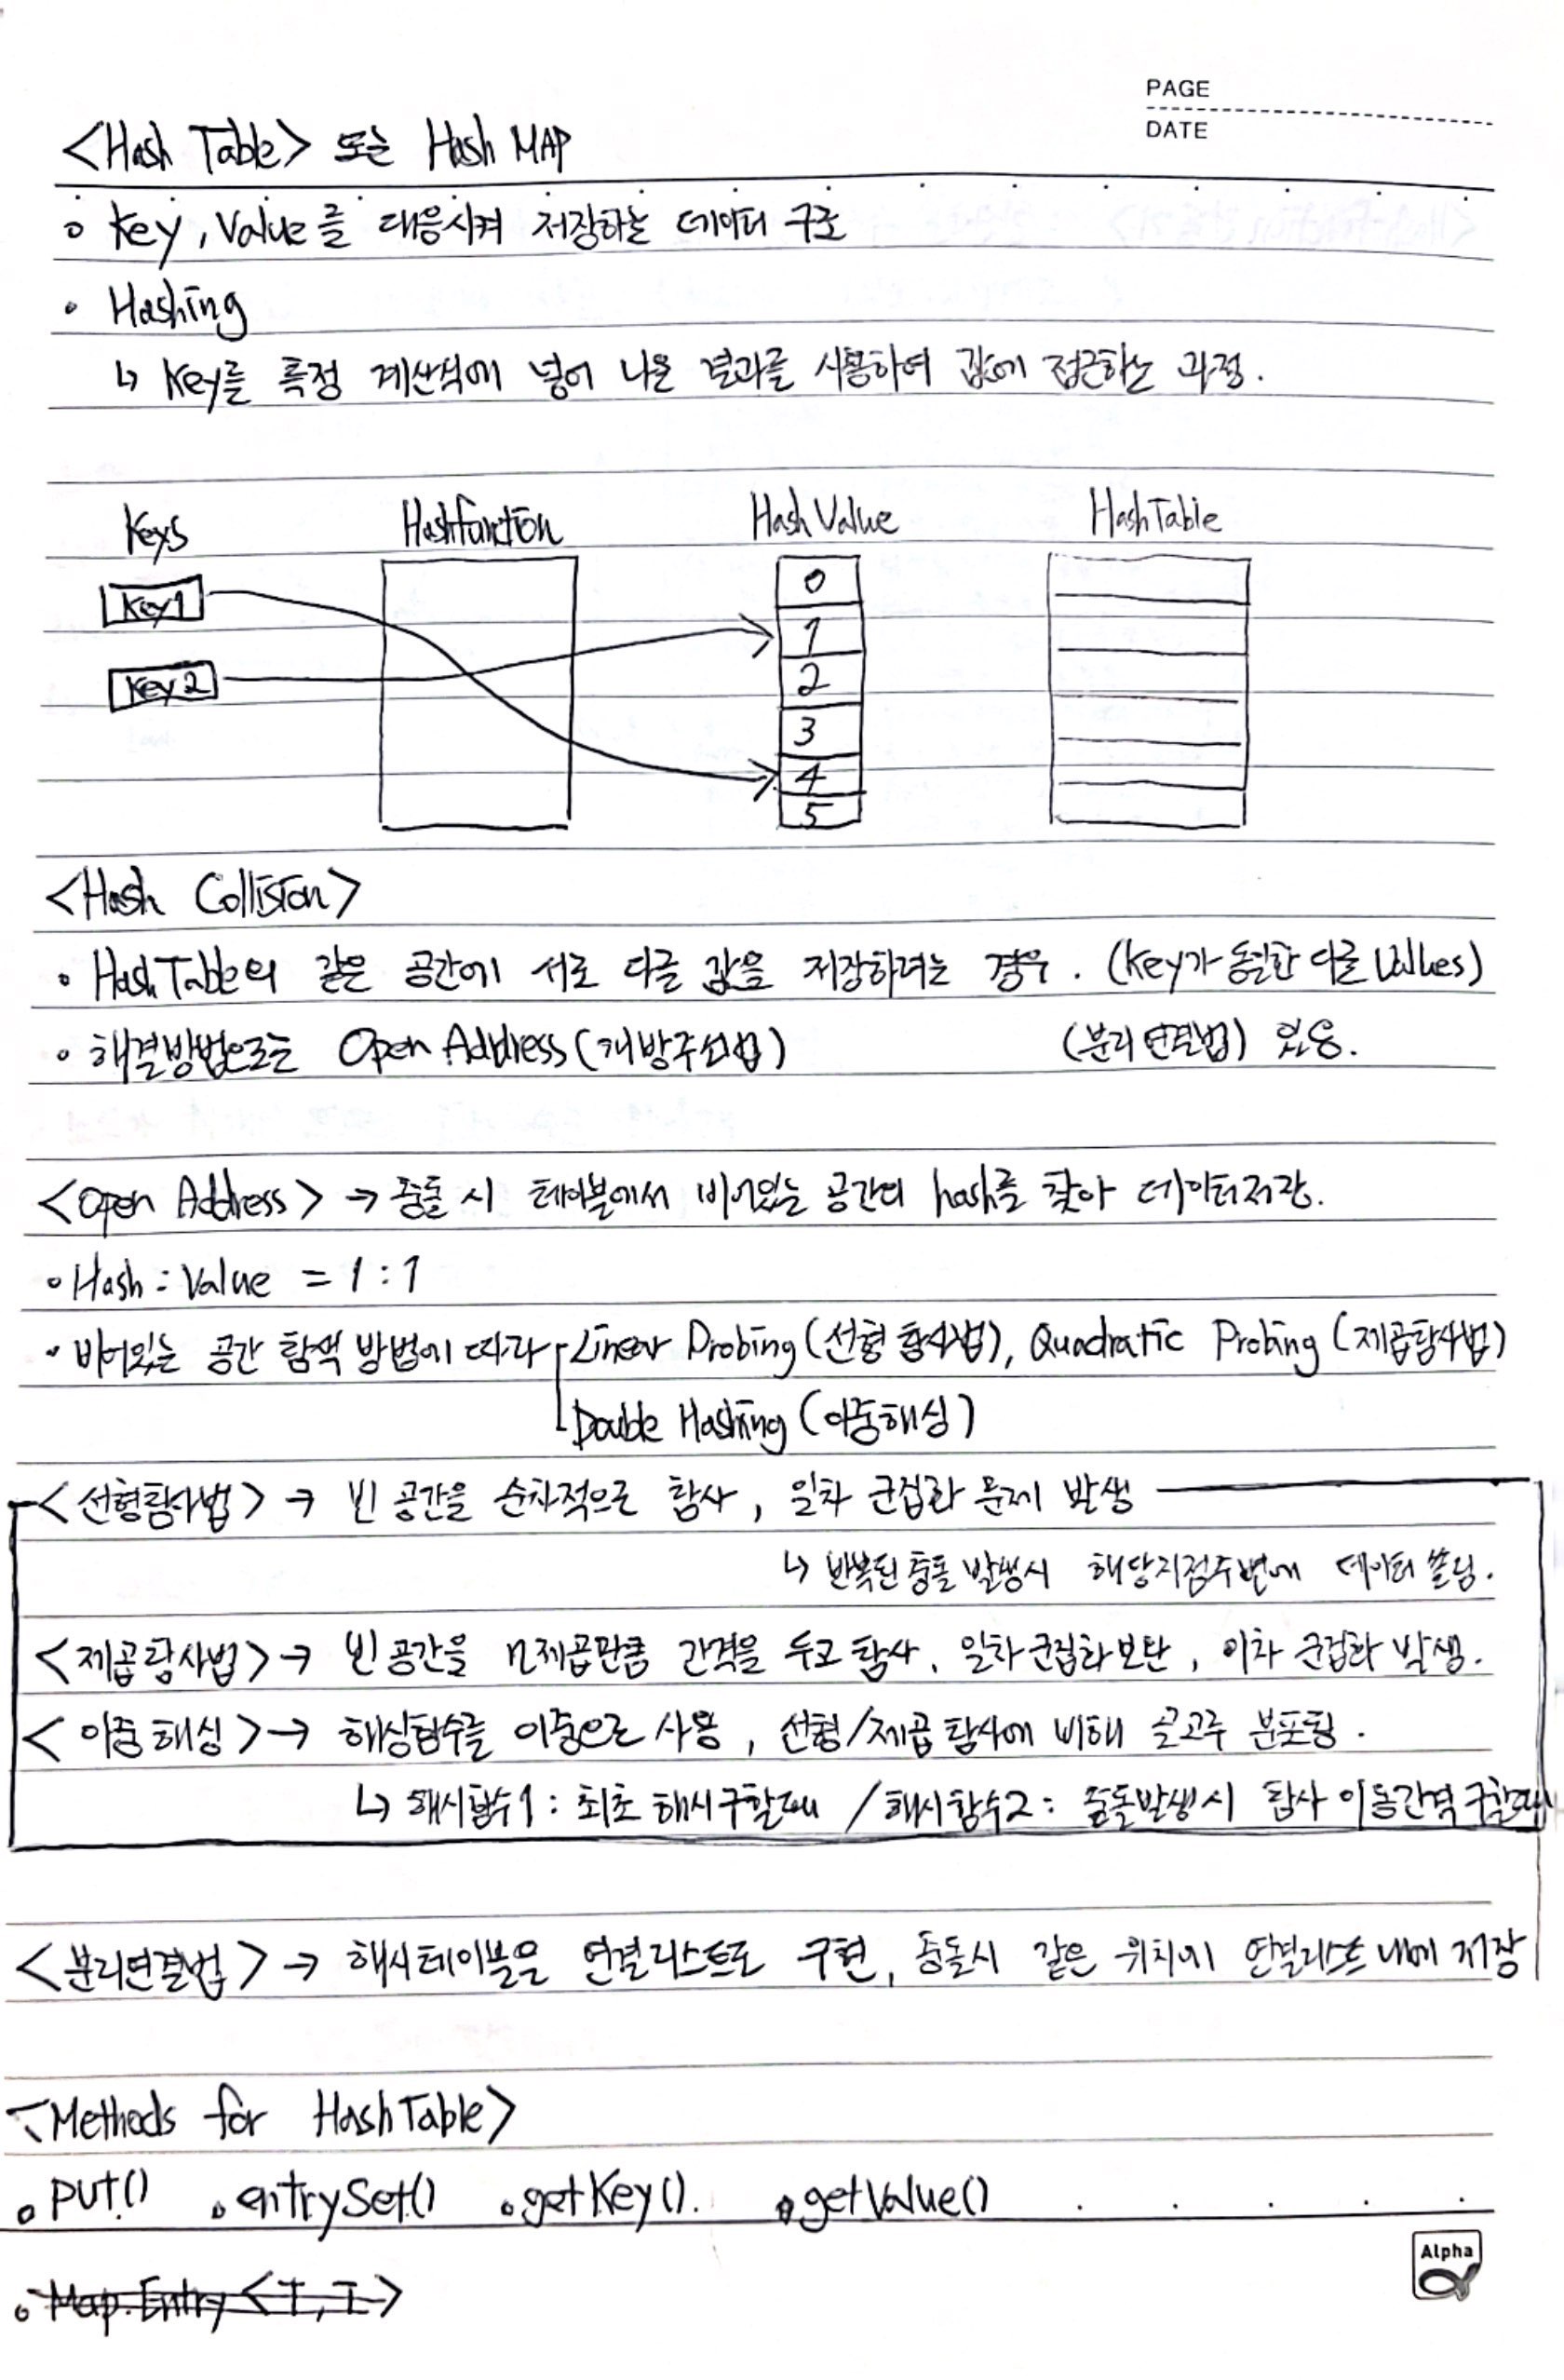 PAGE
DATE
<Hash Table> 또는 Hash MAP
Key, Value를 대응시켜 저장하는 데이터 구조
Hashing
↳ Key를 특정 계산식에 넣어 나온 결과를 사용하여 값에 접근하는 과정.
Keys Hashfunction Hash Value HashTable
Key1
Key2
0
1
2
3
4
5
<Hash Collision>
HashTable의 같은 공간에 서로 다른 값을 저장하려는 경우. (Key가 동일한 다른 Values)
해결방법으로는 Open Address (개방주소법) (분리 연결법) 있음.
<Open Address> → 충돌 시 테이블에서 비어있는 공간의 hash를 찾아 데이터저장.
Hash : Value = 1 : 1
비어있는 공간 탐색 방법에 따라 Linear Probing (선형 탐사법), Quadratic Probing (제곱탐사법)
Double Hashing (이중해싱)
<선형탐사법> → 빈 공간을 순차적으로 탐사, 일차 군집화 문제 발생
↳ 반복된 충돌 발생시 해당지점주변에 데이터 쏠림.
<제곱탐사법> → 빈 공간을 n제곱만큼 간격을 두고 탐사, 일차군집화보완, 이차 군집화 발생.
<이중 해싱> → 해싱함수를 이중으로 사용, 선형/제곱 탐사에 비해 골고루 분포됨.
↳ 해시함수1 : 최초 해시구할때 / 해시함수2 : 충돌발생시 탐사 이동간격 구할때
<분리연결법> → 해시테이블을 연결리스트로 구현, 충돌시 같은 위치에 연결리스트 내에 저장
<Methods for HashTable>
put() entrySet() getKey(). getValue()
Map.Entry <T, T>
Alpha